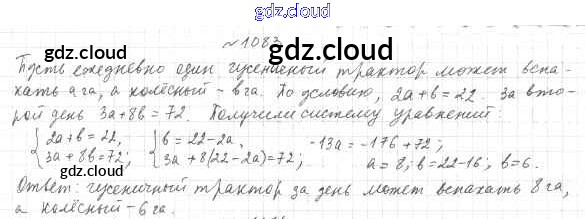 gdz.cloud
№1083
gdz.cloud
Пусть ежедневно один гусеничный трактор может вспа-
хать a га, а колёсный - b га. По условию, 2a + b = 22. За вто-
рой день 3a + 8b = 72. Получили систему уравнений:
{2a + b = 22, {b = 22 - 2a, -13a = -176 + 72;
{3a + 8b = 72; {3a + 8(22 - 2a) = 72; a = 8; b = 22 - 16, b = 6.
gdz.cloud
gdz.cloud
Ответ: гусеничный трактор за день может вспахать 8 га,
а колёсный - 6 га.